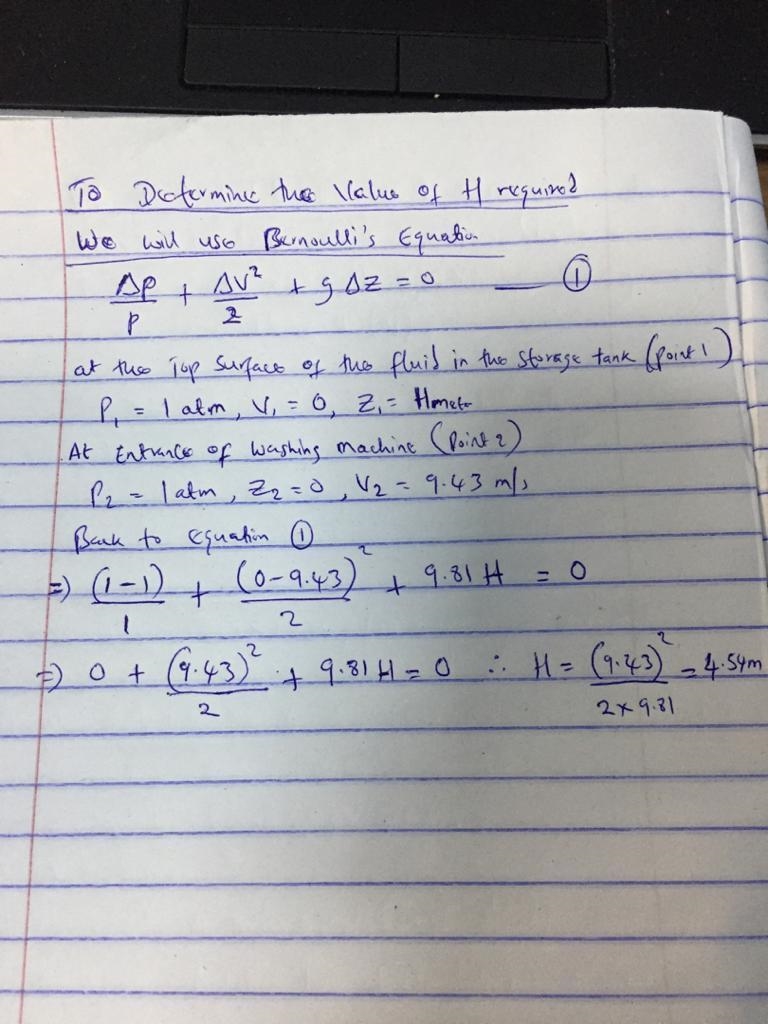 To Determine the Value of H required
We will use Bernoulli's Equation
ΔP/ρ + ΔV²/2 + g ΔZ = 0 — ①
at the Top Surface of the fluid in the storage tank (Point 1)
P₁ = 1 atm, V₁ = 0, Z₁ = H meter
At Entrance of washing machine (Point 2)
P₂ = 1 atm, Z₂ = 0, V₂ = 9.43 m/s
Back to Equation ①
⇒ (1-1)/1 + (0-9.43)²/2 + 9.81 H = 0
⇒ 0 + (9.43)²/2 + 9.81 H = 0 ∴ H = (9.43)²/2×9.81 = 4.54m